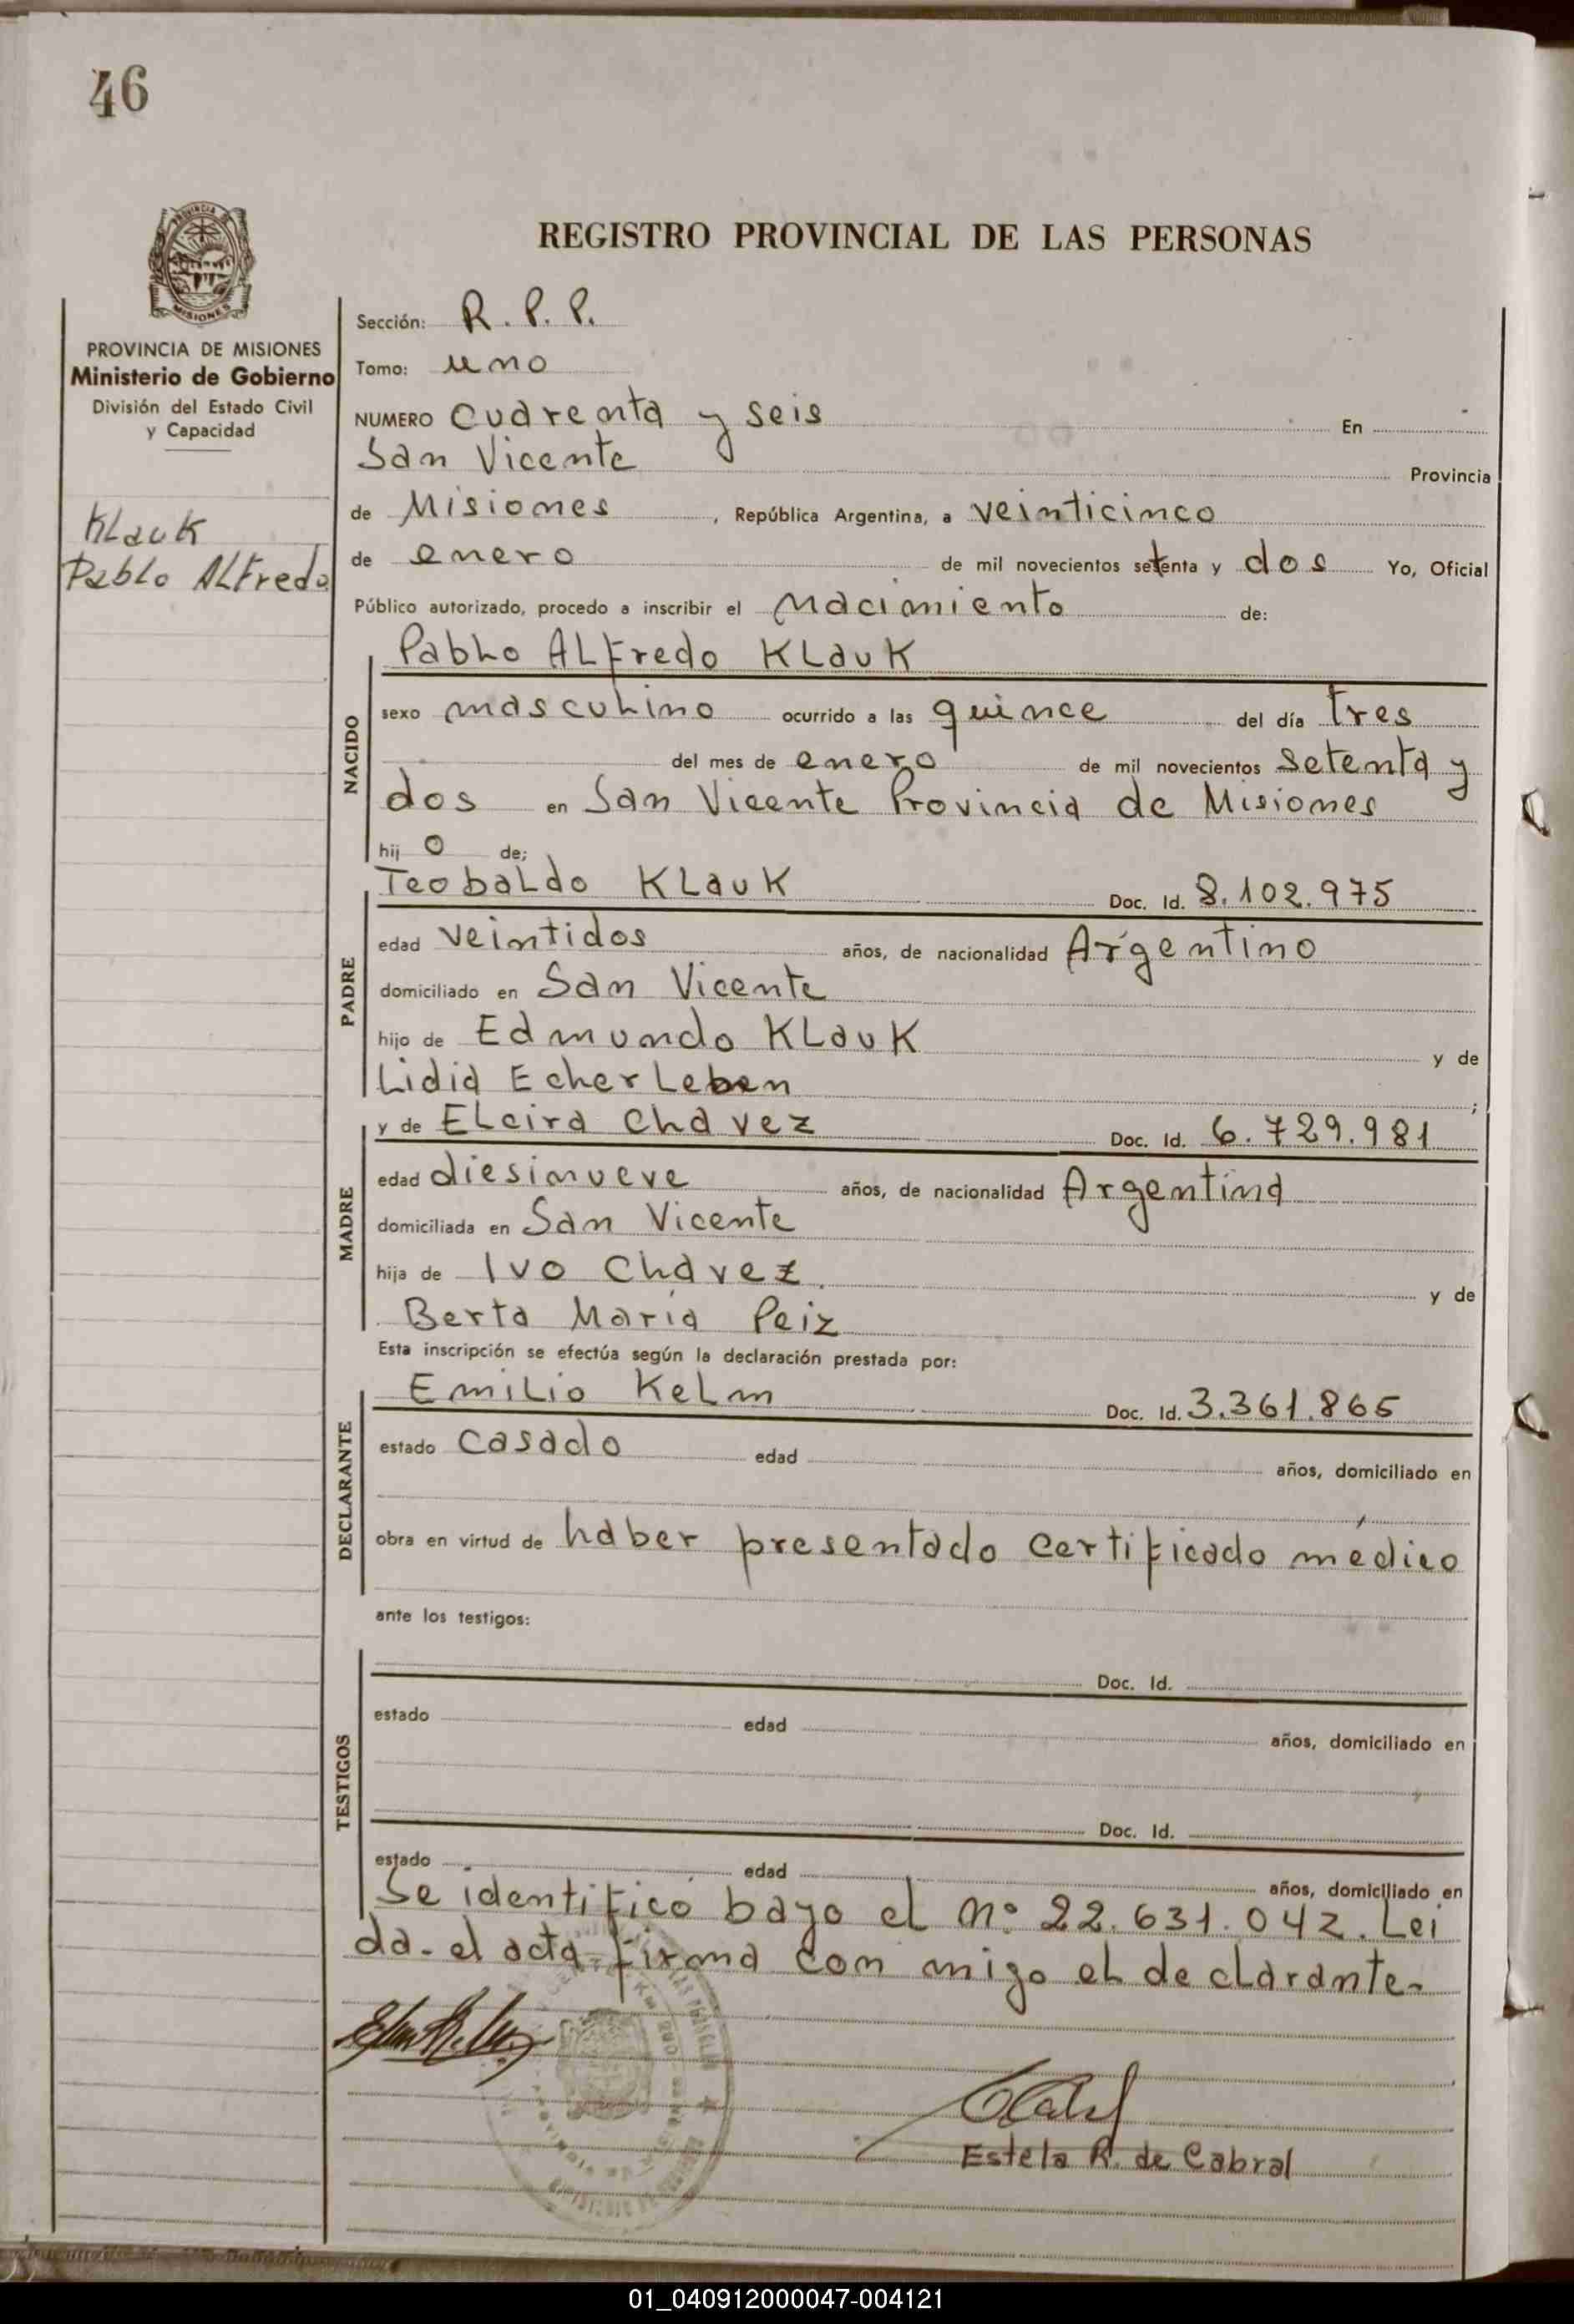 46
PROVINCIA DE
MISIONES
PROVINCIA DE MISIONES
Ministerio de Gobierno
División del Estado Civil
y Capacidad
Klauk
Pablo Alfredo
REGISTRO PROVINCIAL DE LAS PERSONAS
Sección: R.P.P.
Tomo: uno
NUMERO Cuarenta y seis En
San Vicente Provincia
de Misiones, República Argentina, a veinticinco
de enero de mil novecientos setenta y dos Yo, Oficial
Público autorizado, procedo a inscribir el nacimiento de:
Pablo Alfredo Klauk
NACIDO
sexo masculino ocurrido a las quince del día tres
del mes de enero de mil novecientos setenta y
dos en San Vicente Provincia de Misiones
hij o de;
Teobaldo Klauk Doc. Id. 8.102.975
PADRE
edad veintidos años, de nacionalidad Argentino
domiciliado en San Vicente
hijo de Edmundo Klauk y de
Lidia Echerleben ;
y de Elcira Chavez Doc. Id. 6.729.981
MADRE
edad diesinueve años, de nacionalidad Argentina
domiciliada en San Vicente
hija de Ivo Chavez. y de
Berta María Peiz
Esta inscripción se efectúa según la declaración prestada por:
Emilio Kelm Doc. Id. 3.361.865
DECLARANTE
estado casado edad años, domiciliado en
obra en virtud de haber presentado certificado médico
ante los testigos:
Doc. Id.
TESTIGOS
estado edad años, domiciliado en
Doc. Id.
estado edad años, domiciliado en
Se identificó bayo el nº 22.631.042. Lei
da- el acta firma con migo el declarante-
Estela R. de Cabral
01_040912000047-004121